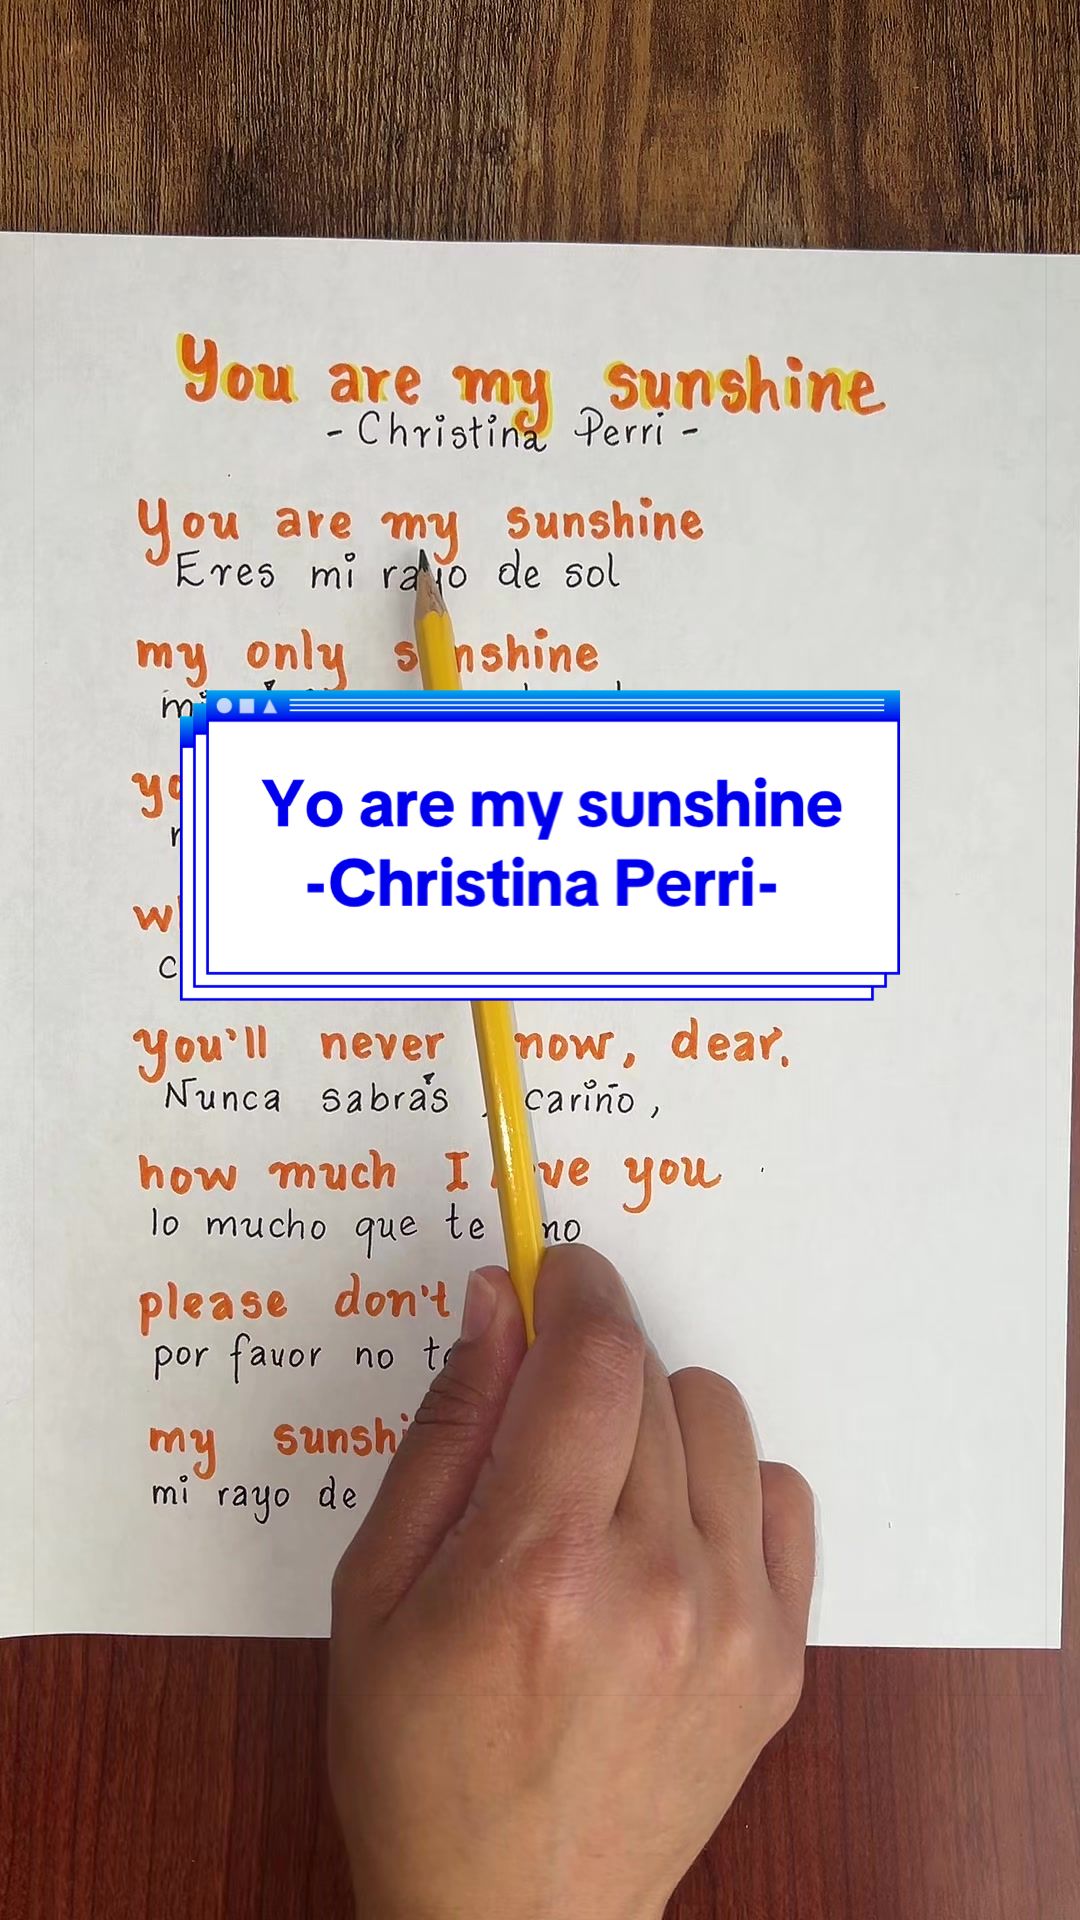 You are my sunshine
- Christina Perri -
You are my sunshine
Eres mi rayo de sol
my only sunshine
Yo are my sunshine
-Christina Perri-
you'll never know, dear.
Nunca sabrás, cariño,
how much I love you
lo mucho que te amo
please don't
por favor no
my
mi rayo de